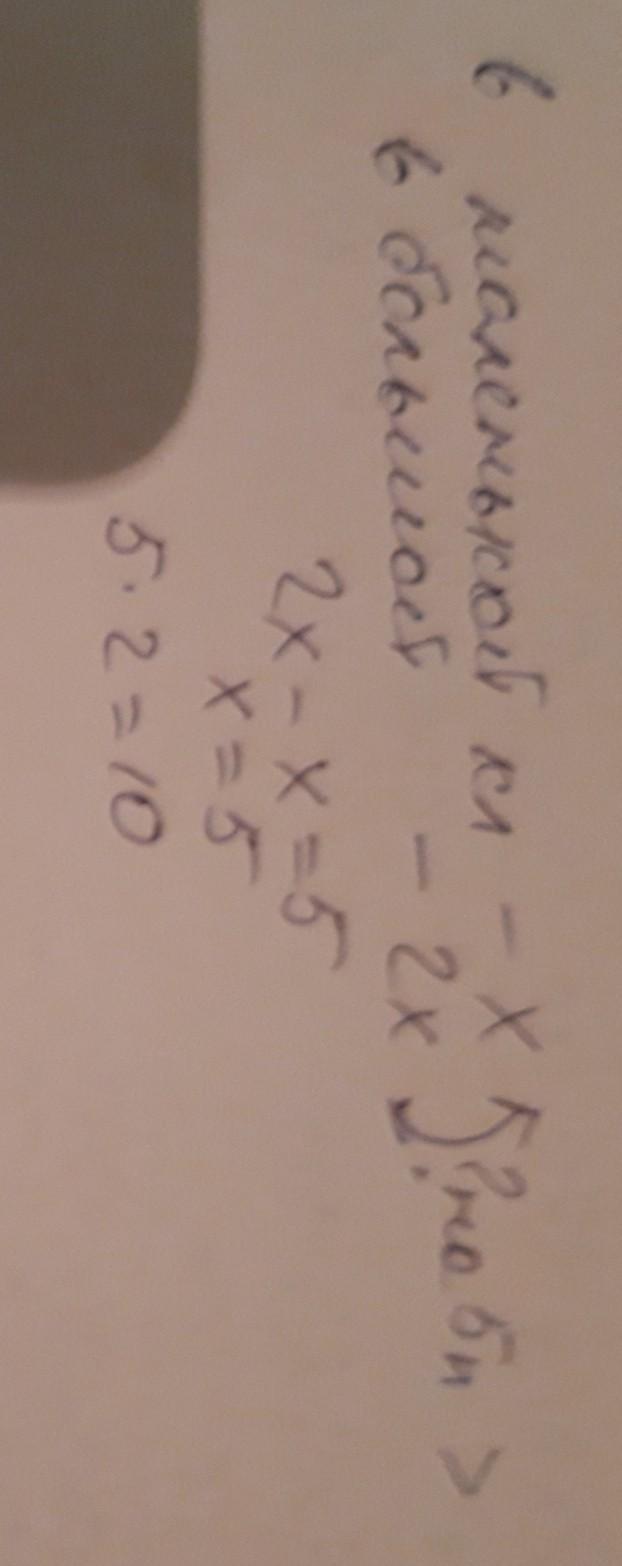 в маленькой кл - x ? на 5 л >
в большой - 2x
2x - x = 5
x = 5
5 · 2 = 10